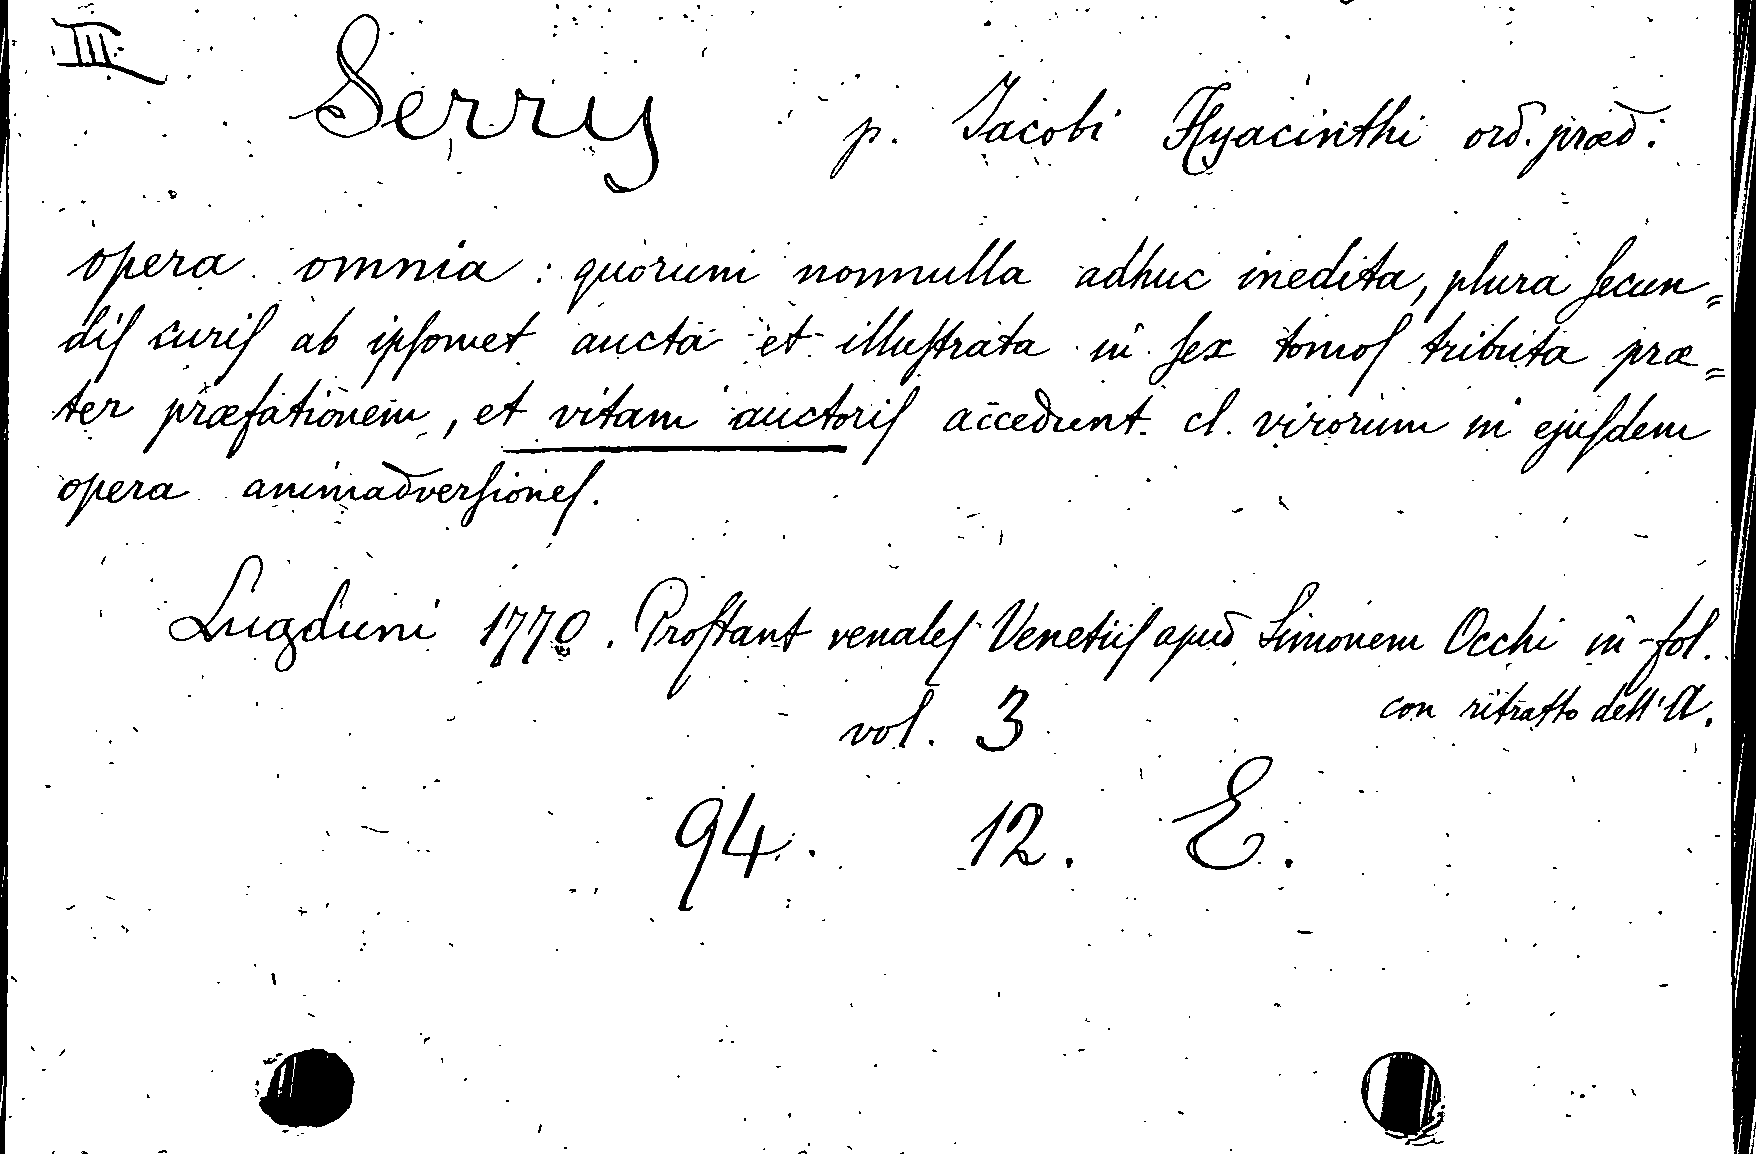 III
Serry p. Jacobi Hyacinthi ord. præd:
opera omnia: quorum nonnulla adhuc inedita, plura ſecun=
diſ curiſ ab ipſomet aucta et illuſtrata in ſex tomoſ tributa præ=
ter præfationem, et vitam auctoriſ accedunt. cl. virorum in ejuſdem
opera animadverſioneſ.
Lugduni 1770. Proſtant venaleſ Venetiiſ apud Simonem Occhi in-fol.
con ritratto dell'A.
vol. 3
94. 12. E.